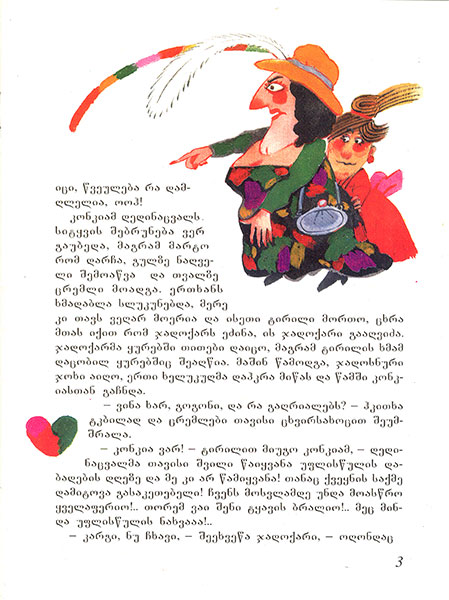 იცი, წვეულება რა დამ-
ღლელია, ოოჰ!
კონკიამ დედინაცვალს
სიტყვის შებრუნება ვერ
გაუბედა, მაგრამ მარტო
რომ დარჩა, გულზე ნაღვე-
ლი შემოაწვა და თვალზე
ცრემლი მოადგა. ერთხანს
ხმადაბლა სლუკუნებდა, მერე
კი თავს ვეღარ მოერია და ისეთი ტირილი მორთო, ცხრა
მთას იქით რომ ჯადოქარს ეძინა, ის ჯადოქარი გააღვიძა.
ჯადოქარმა ყურებში თითები დაიცო, მაგრამ ტირილის ხმამ
დაცობილ ყურებშიც შეაღწია. მაშინ წამოდგა, ჯადოსნური
ჯოხი აიღო, ერთი ხელუკუღმა დაჰკრა მიწას და წამში კონ-
კიასთან გაჩნდა.
– ვინა ხარ, გოგონი, და რა გაღრიალებს? – ჰკითხა
ტკბილად და ცრემლები თავისი ცხვირსახოცით შეუმ-
შრალა.
– კონკია ვარ! – ტირილით მიუგო კონკიამ, – დედი-
ნაცვალმა თავისი შვილი წაიყვანა უფლისწულის და-
ბადების დღეზე და მე კი არ წამიყვანა! თანაც ქვეყნის საქმე
დამიტოვა გასაკეთებელი! ჩვენს მოსვლამდე უნდა მოასწრო
ყველაფერიო!.. თორემ ვაი შენი ტყავის ბრალიო!.. მეც მინ-
და უფლისწულის ნახვააა!..
– კარგი, ნუ ჩხავი, – შეეხვეწა ჯადოქარი, – ოღონდაც
3